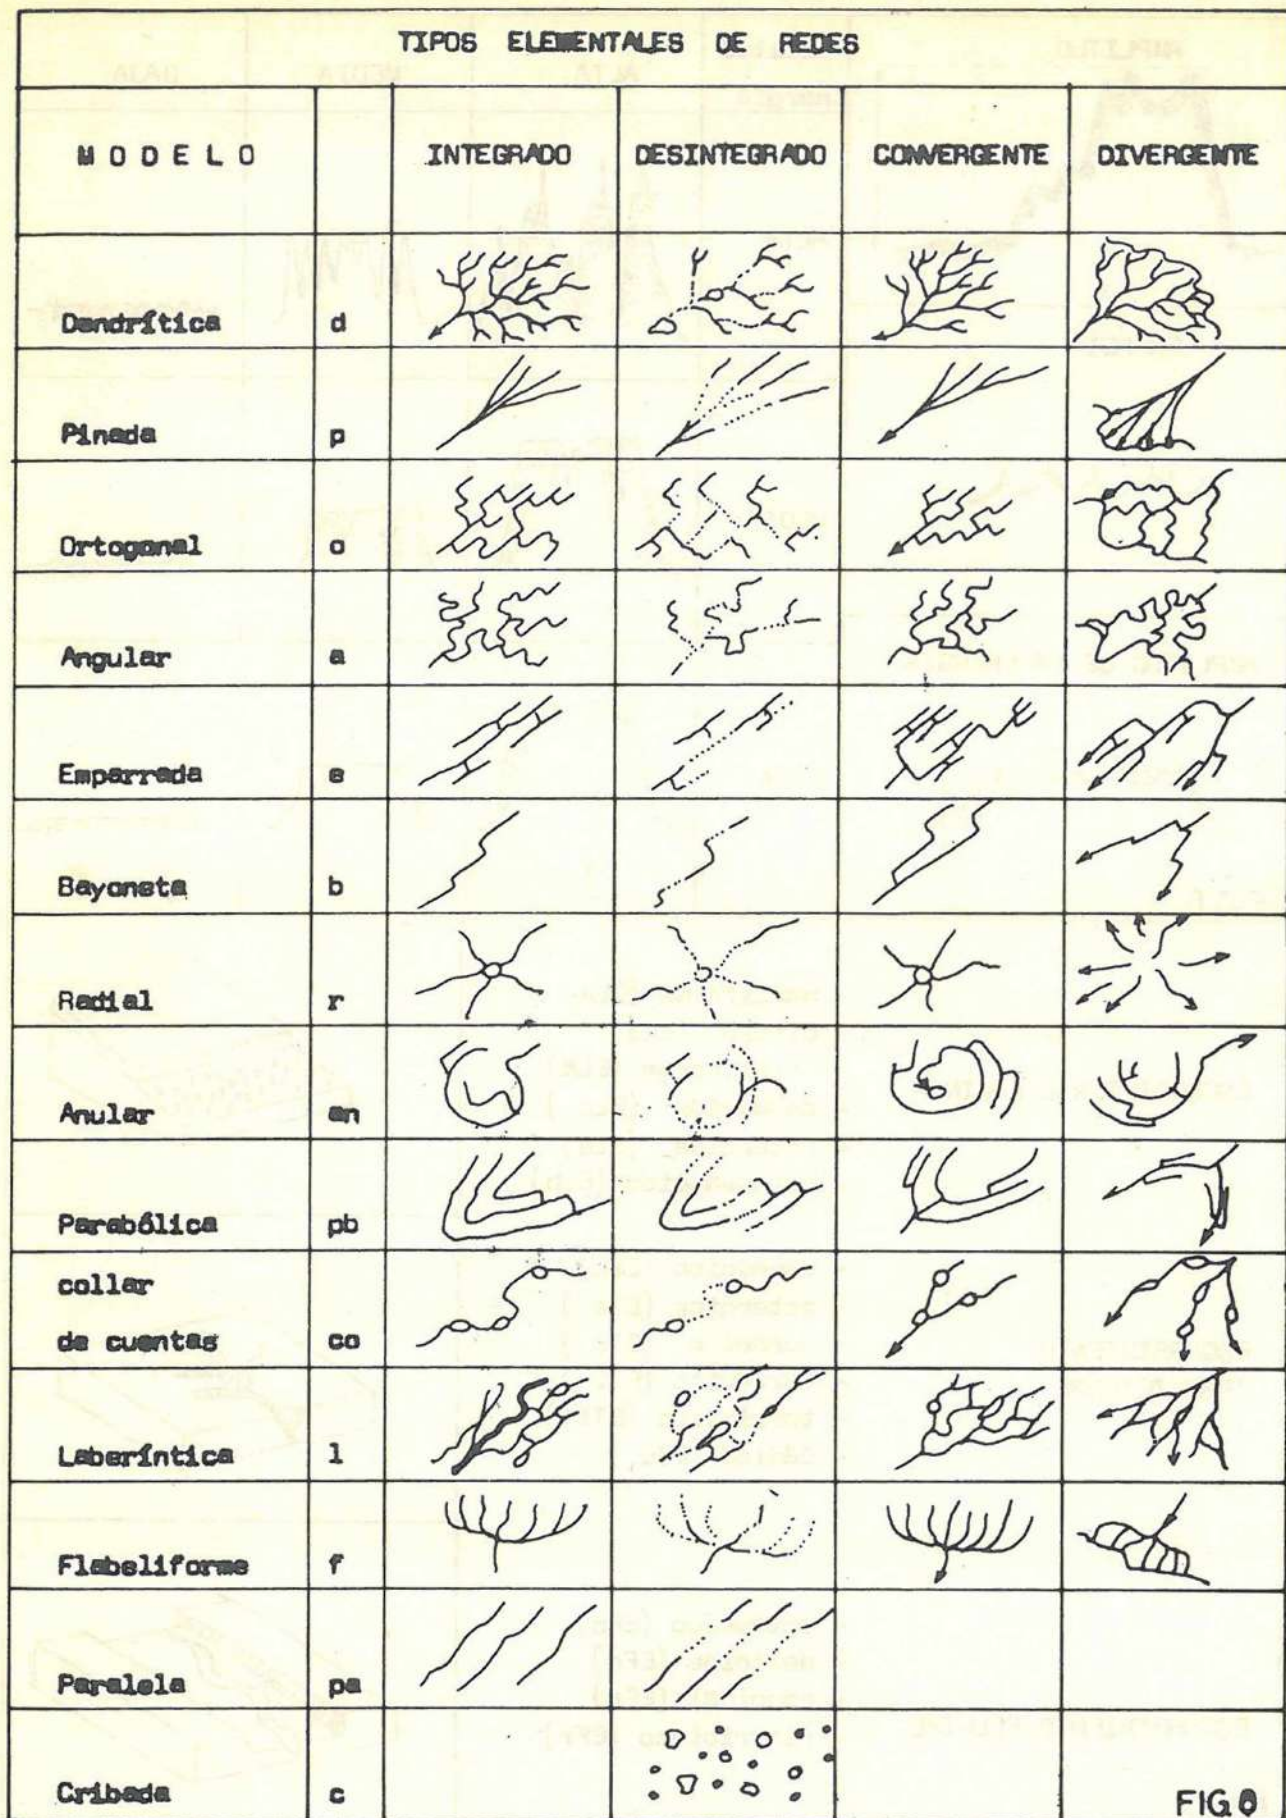 TIPOS ELEMENTALES DE REDES
MODELO INTEGRADO DESINTEGRADO CONVERGENTE DIVERGENTE
Dendrítica d
Pinada p
Ortogonal o
Angular a
Emparrada e
Bayoneta b
Radial r
Anular an
Parabólica pb
collar
de cuentas co
Laberíntica l
Flabeliforme f
Paralela pa
Cribada c
FIG 8